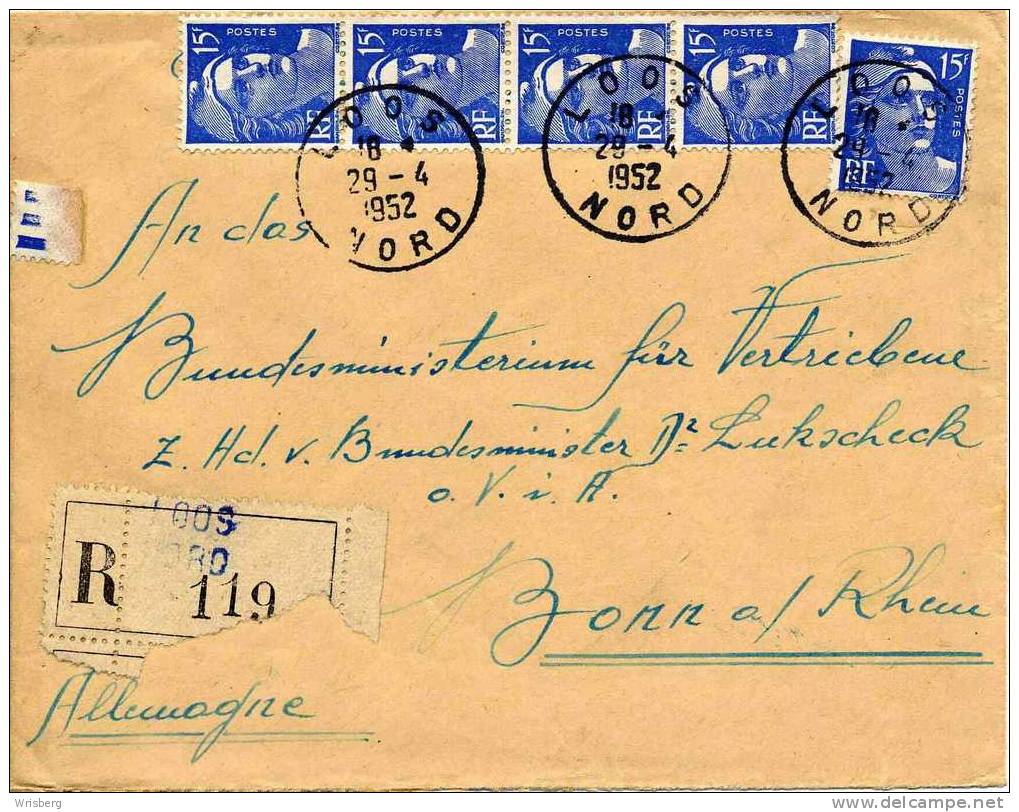 15F POSTES RF
15F POSTES RF
15F POSTES RF
15F POSTES RF
15F POSTES RF
LOOS
18
29-4
1952
NORD
LOOS
18
29-4
1952
NORD
LOOS
18
29-4
1952
NORD
An das
Bundesministerium für Vertriebene
z. Hd. v. Bundesminister Dr Lukscheck
o. V. i. A.
LOOS
NORD
R 119
Bonn a/ Rhein
Allemagne
Wrisberg
delcampe.net